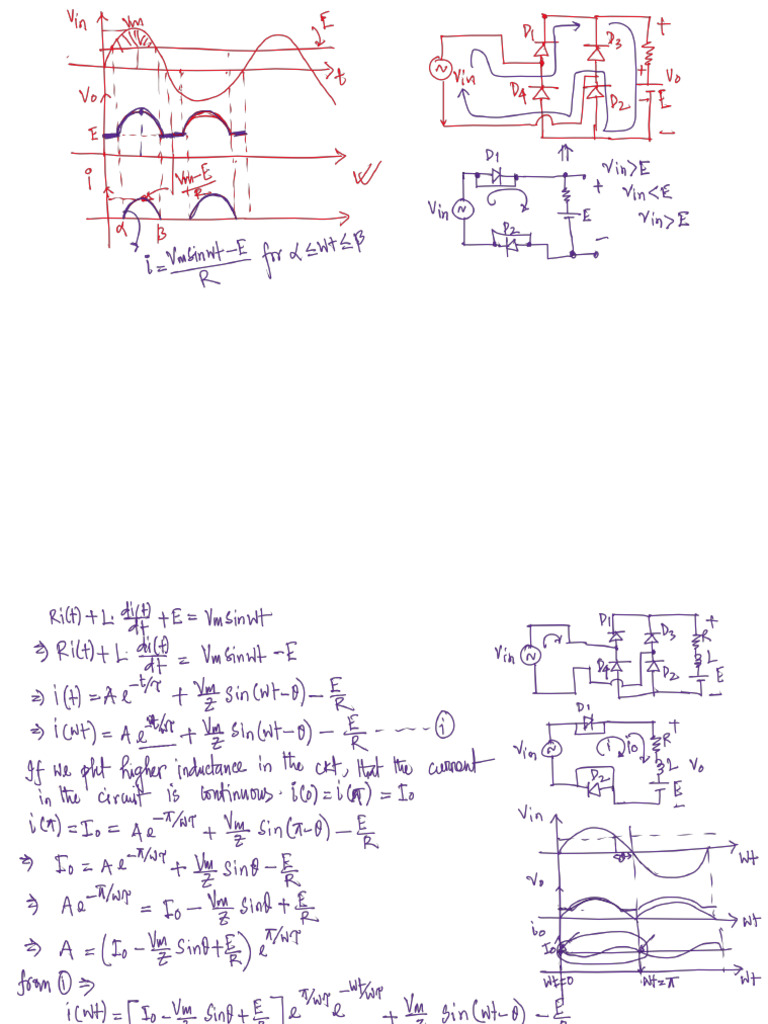 Vin
Vm
E
t
Vo
E
i
Vm-E
R
α
β
wt
i = Vm sinwt - E / R for α ≤ wt ≤ β
D1
D3
+
Vin
Vo
+
E
D4
D2
-
D1
Vin
+
E
D2
-
Vin>E
Vin<E
Vin>E
Ri(t) + L. di(t)/dt + E = Vm sinwt
⇒ Ri(t) + L. di(t)/dt = Vm sinwt - E
⇒ i(t) = A e^-t/τ + Vm/Z sin(wt-θ) - E/R
⇒ i(wt) = A e^-wt/wτ + Vm/Z sin(wt-θ) - E/R ------ (i)
If we put higher inductance in the ckt, that the current
in the circuit is continuous. i(0) = i(π) = Io
i(π) = Io = A e^-π/wτ + Vm/Z sin(π-θ) - E/R
⇒ Io = A e^-π/wτ + Vm/Z sinθ - E/R
⇒ A e^-π/wτ = Io - Vm/Z sinθ + E/R
⇒ A = (Io - Vm/Z sinθ + E/R) e^π/wτ
from (i) ⇒
i(wt) = [Io - Vm/Z sinθ + E/R] e^π/wτ e^-wt/wτ + Vm/Z sin(wt-θ) - E/R
D1
D3
+
R
Vin
L
D4
D2
E
-
D1
+
Vin
i
io
R
L
Vo
D2
E
-
Vin
θ
wt
Vo
wt
io
Io
wt=0
wt=π
wt